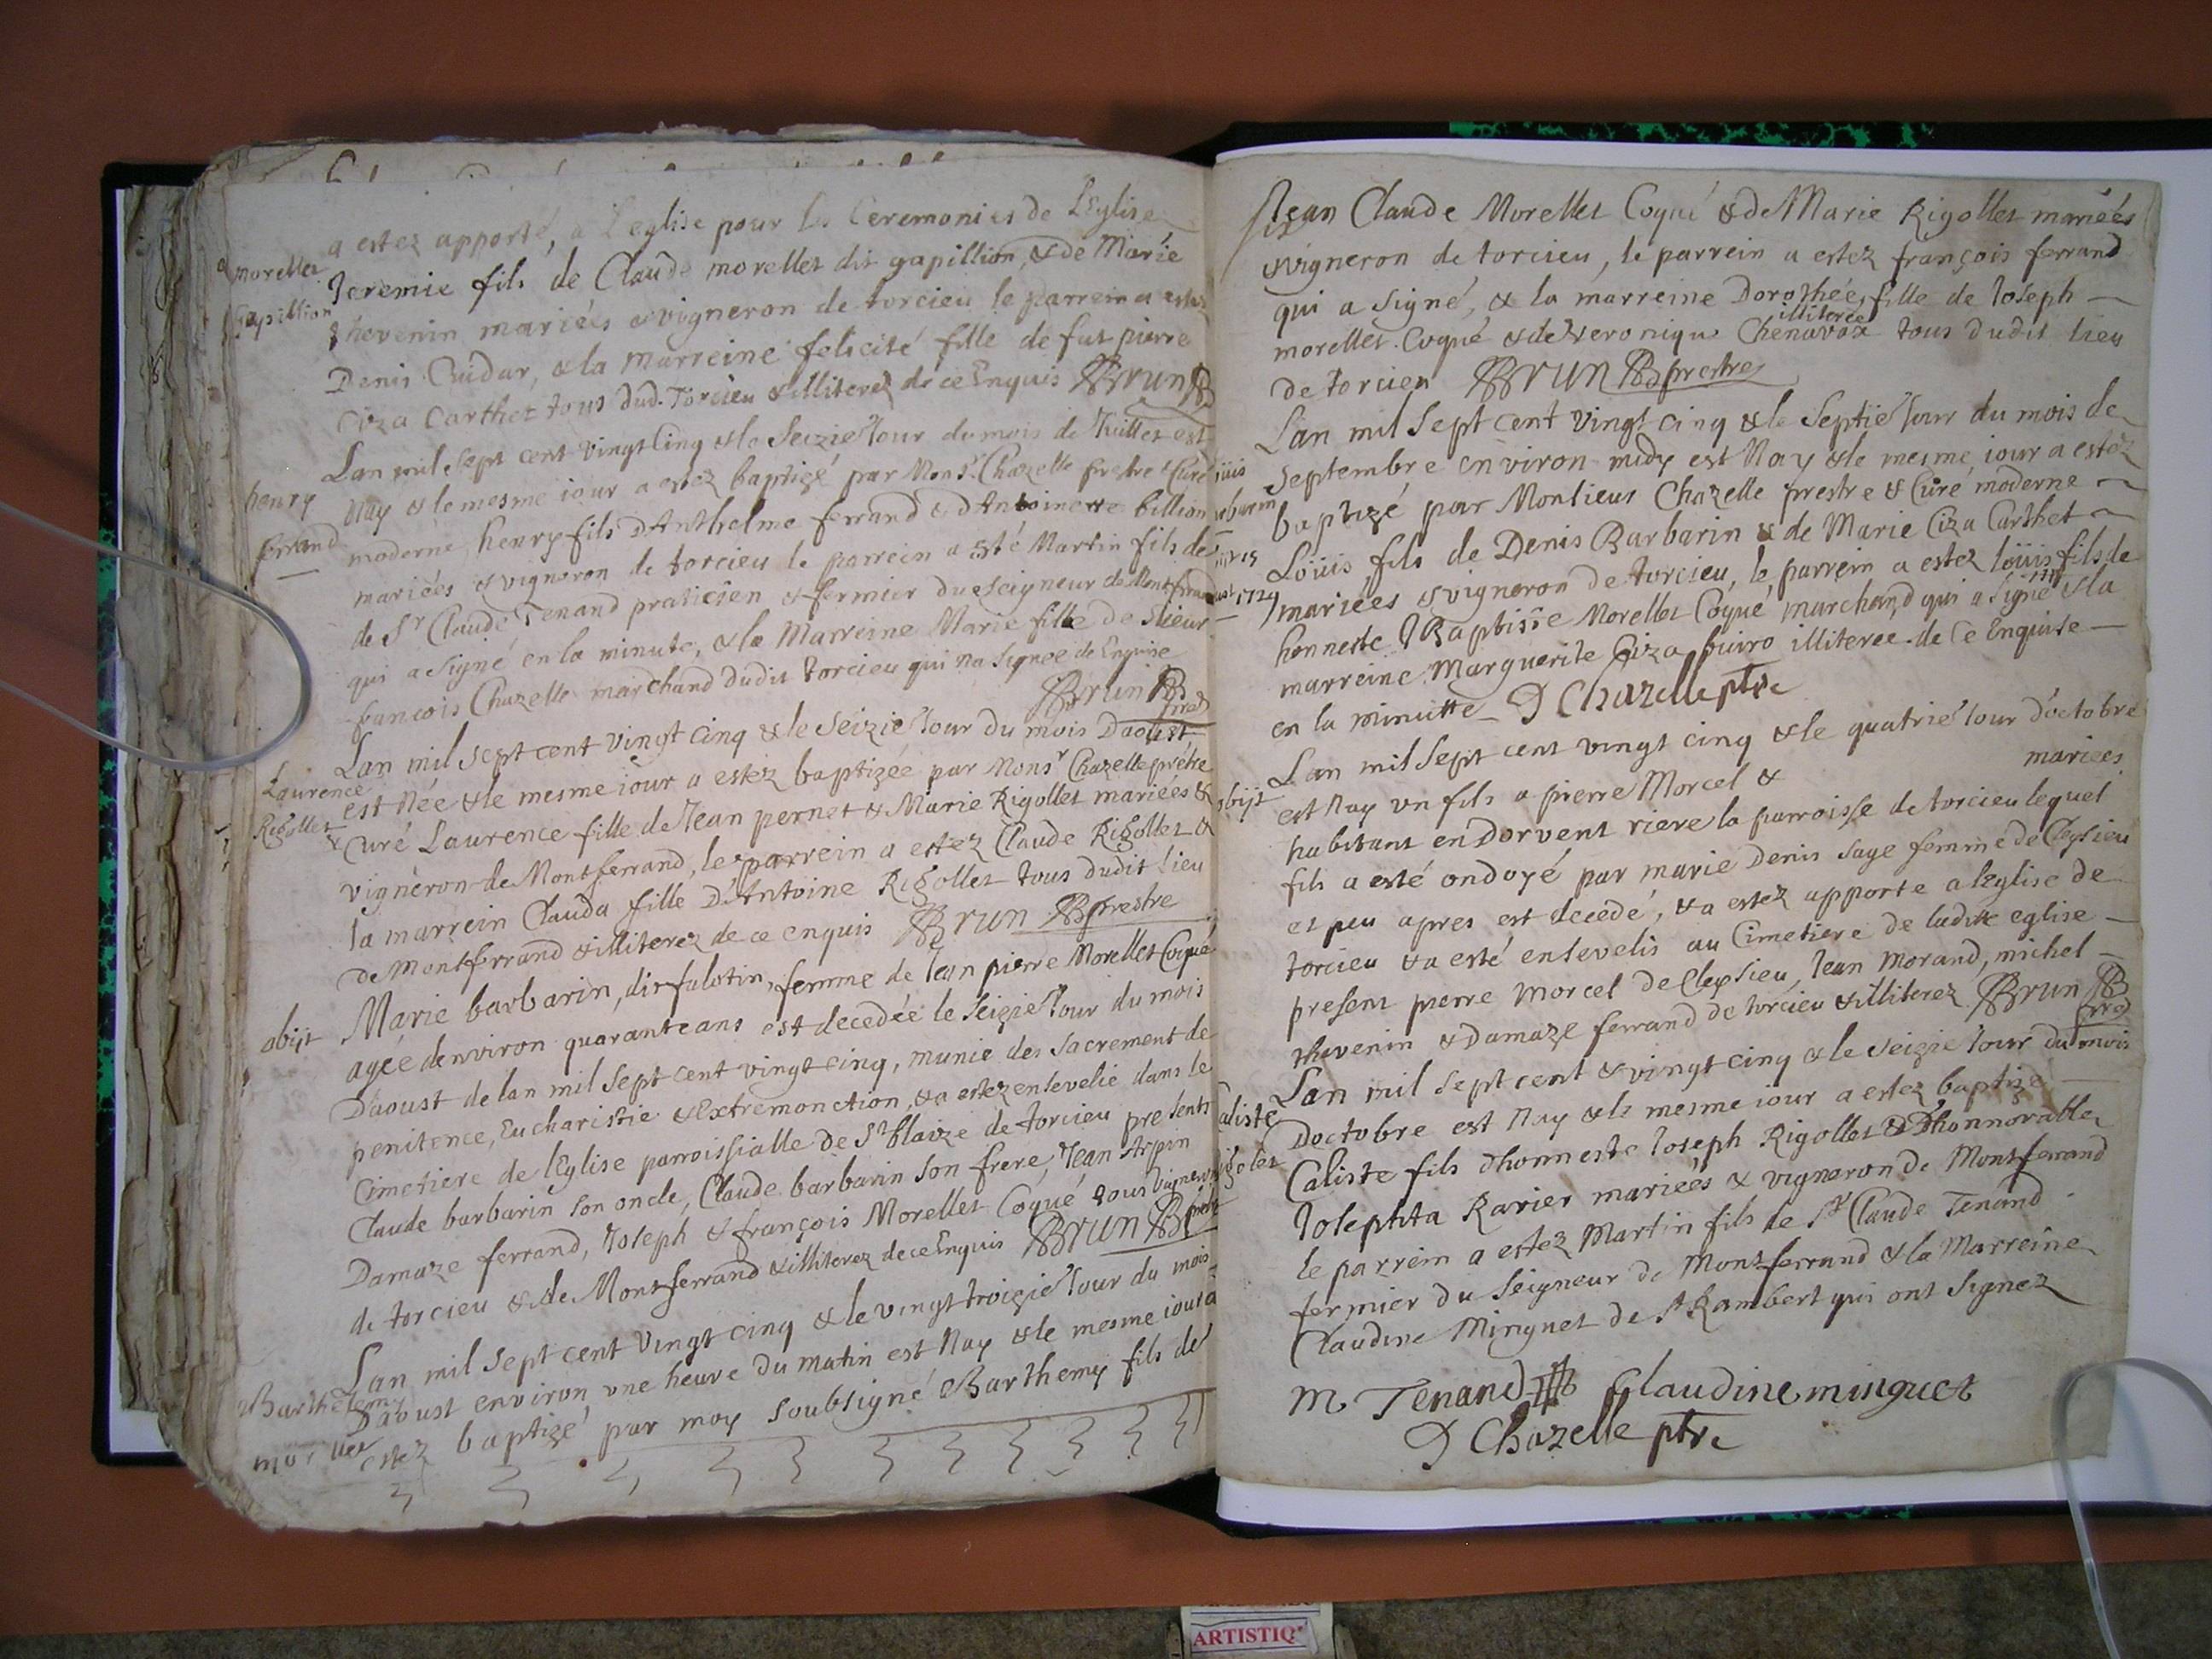 a estez apporté, a l'eglise pour les Ceremonies de L'Eglise
morellet
gapillion
Jeremie fils de Claude morellet dit gapillion, & de Marie
thevenin mariées & vigneron de torcieu le parrein a estez
Denis Cuidar, & la marreine felicité fille de fut pierre
Ciza Carthet tous dud. Torcieu & illiterez de ce Enquis BRUN
Lan mil sept cent vingt Cinq & le Seizie Jour du mois de Juillet est
henry
ferrand
Nay & le mesme iour a estez baptizé par Monsr. Chazelle prestre & Curé
moderne, henry fils D'Anthelme ferrand & d'Antoinette billion
mariées & vigneron de torcieu le parrein a esté Martin fils de
de Sr Claude Tenand praticien & fermier du Seigneur de Montferrand
qui a signé en la minute, & la Marreine Marie fille de Sieur
francois Chazelle marchand dudit torcieu qui na signee de Enquise
BRUN
Lan mil sept cent vingt cinq & le seizie Jour du mois Daoust
Laurence
Rigollet
est Née & le mesme iour a estez baptizée par Monsr Chazelle prétre
& Curé Laurence fille de Jean pernet & Marie Rigollet mariées &
vigneron de Montferrand, le parrein a estez Claude Rigollet &
la marrein Clauda fille D'Antoine Rigollet tous dudit lieu
de Montferrand & illiterez de ce enquis BRUN prestre
obijt
Marie barbarin, dit falotin, femme de Jean pierre Morellet Coqué
agée denviron quarante ans est decedée le seizie Jour du mois
Daoust de lan mil sept cent vingt cinq, munie des sacrement de
penitence, Eucharistie & Extremonction, & a estez ensevelie dans le
Cimetiere de l'Eglise parroissialle de St blaize de torcieu presents
Claude barbarin son oncle, Claude barbarin son frere, Jean Arpin
Damaze ferrand, Joseph & françois Morellet Coqué tous vigneron
de torcieu & de Montferrand & illiterez de ce Enquis BRUN prestre
Lan mil sept cent vingt cinq & le vingt troizie Jour du mois
Barthelemy
Daoust environ vne heure du matin est Nay & le mesme iour a
estez baptizé par moy soubsigné Barthemy fils de
Jean Claude Morellet Coqué & de Marie Rigollet mariées
& vigneron de torcieu, le parrein a estez françois ferrand
qui a signé, & la marreine Dorothée, fille de Joseph
illiteree
morellet Coqué & de Veronique Chenavax tous dudit lieu
de torcieu BRUN prestre
Lan mil sept cent vingt cinq & le septie Jour du mois de
septembre environ midy est Nay & le mesme iour a estez
baptizé par Monsieur Chazelle prestre & Curé moderne
Loüis, fils de Denis Barbarin & de Marie Ciza Carthet
mariées & vigneron de torcieu, le parrein a estez loüis fils de
1729
honneste JBaptiste Morellet Coqué marchand qui a signé & la
marreine Marguerite Ciza buiro illiteree de Ce Enquise
en la minutte D Chazelle ptre
Lan mil sept cent vingt cinq & le quatrie Jour d'octobre
obijt
est Nay vn fils a pierre Morcel & mariees
habitant en Dorvent riere la parroisse de torcieu lequel
fils a esté ondoyé par marie Denis sage femme de Cleysieu
et peu apres est decedé, & a estez apporte a leglise de
torcieu & a esté ensevelis au Cimetiere de laditte eglise
present pierre morcel de Cleysieu, Jean Morand, michel
thevenin & Damaze ferrand de torcieu & illiterez BRUN
Lan mil sept cent & vingt cinq & le seizie Jour du mois
Caliste
Rigolet
Doctobre est Nay & le mesme iour a estez baptize
Caliste fils d'honneste Joseph Rigollet & D'honnorable
Josephta Ravier mariées & vigneron de Montferrand
le parrein a estez Martin fils de Sr Claude Tenand
fermier du Seigneur de Montferrand & la Marreine
Claudine Minguet de St Rambert qui ont signez
M. Tenand Claudine minguet
D Chazelle ptre
ARTISTIQ